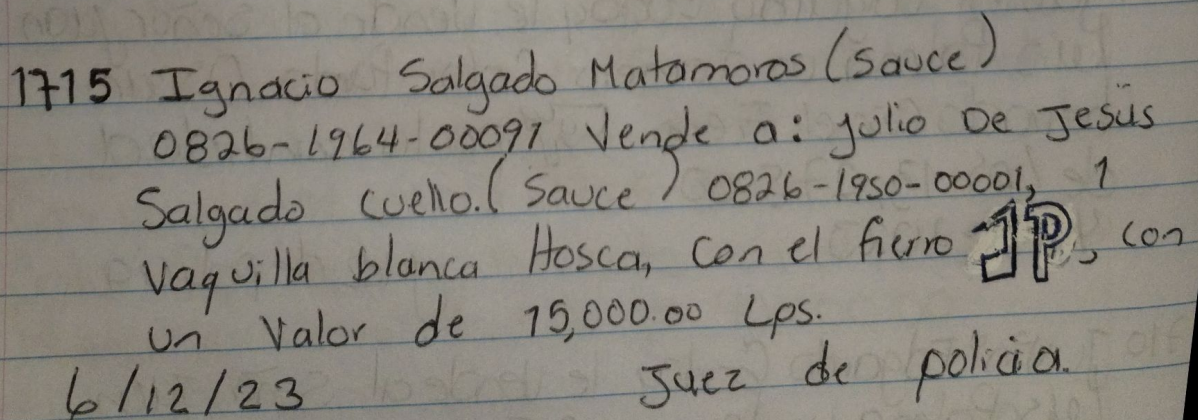 1715 Ignacio Salgado Matamoros (Sauce)
0826-1964-00091 Vende a: Julio De Jesüs
Salgado Cuello. (Sauce) 0826-1950-00001, 1
Vaquilla blanca Hosca, con el fierro JP, con
un valor de 15,000.00 Lps.
6/12/23 Juez de policia.